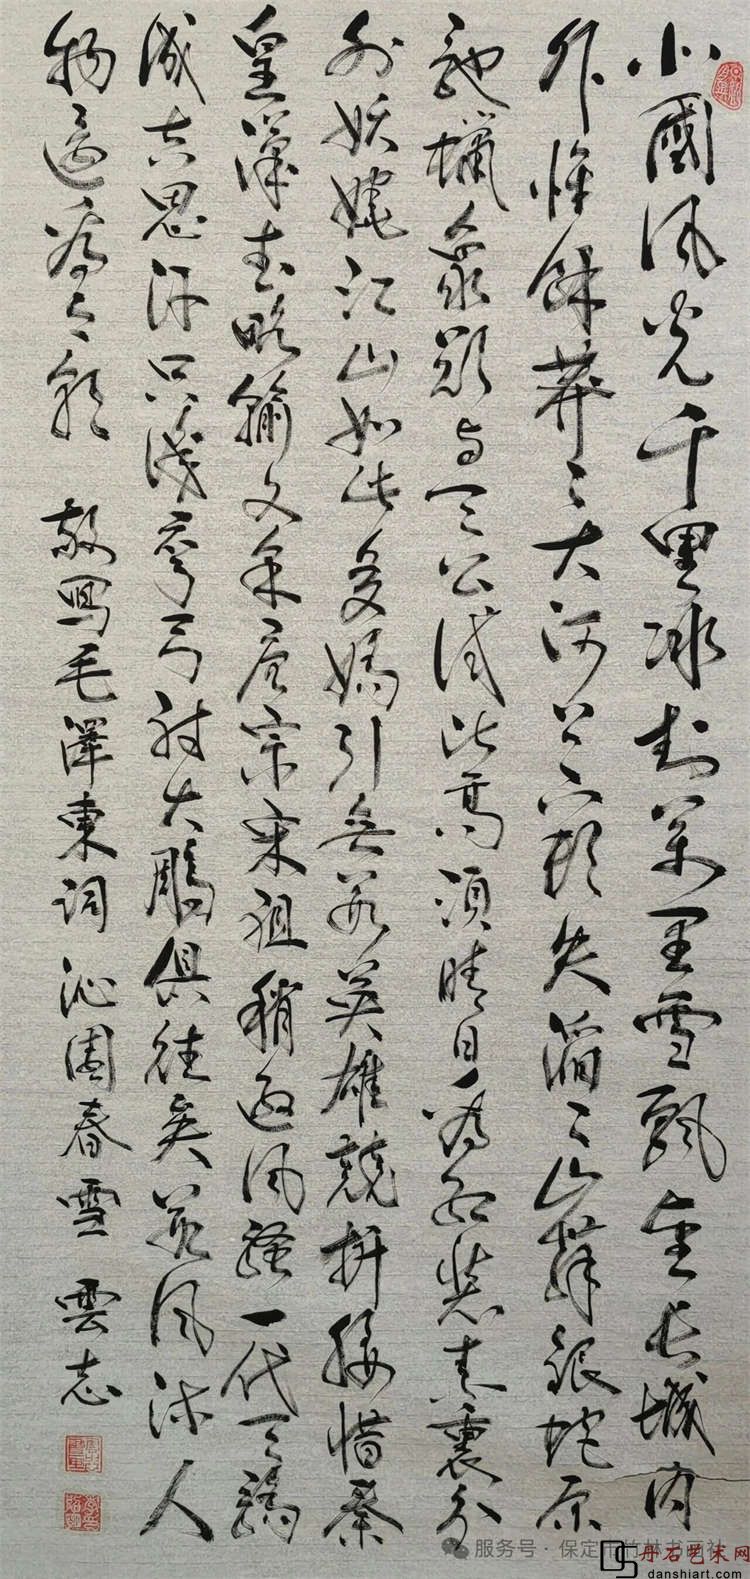 北國风光千里冰封萬里雪飘望长城内
外惟餘莽〻大河上下頓失滔〻山舞銀蛇原
馳蠟象欲与天公试比高须晴日看红装素裹分
外妖娆江山如此多嬌引無数英雄競折腰惜秦
皇漢武略輸文采唐宗宋祖稍逊风骚一代天驕
成吉思汗只识弯弓射大鵰俱往矣数风流人
物還看今朝 敬寫毛澤東詞沁園春雪 雲志
服务号 · 保定市竹林书画社
丹石艺术网
danshiart.com